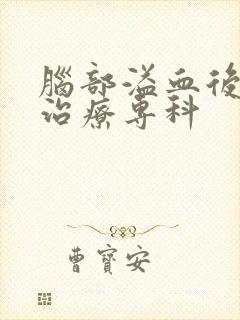 腦部溢血後
治療專科
曹寶安